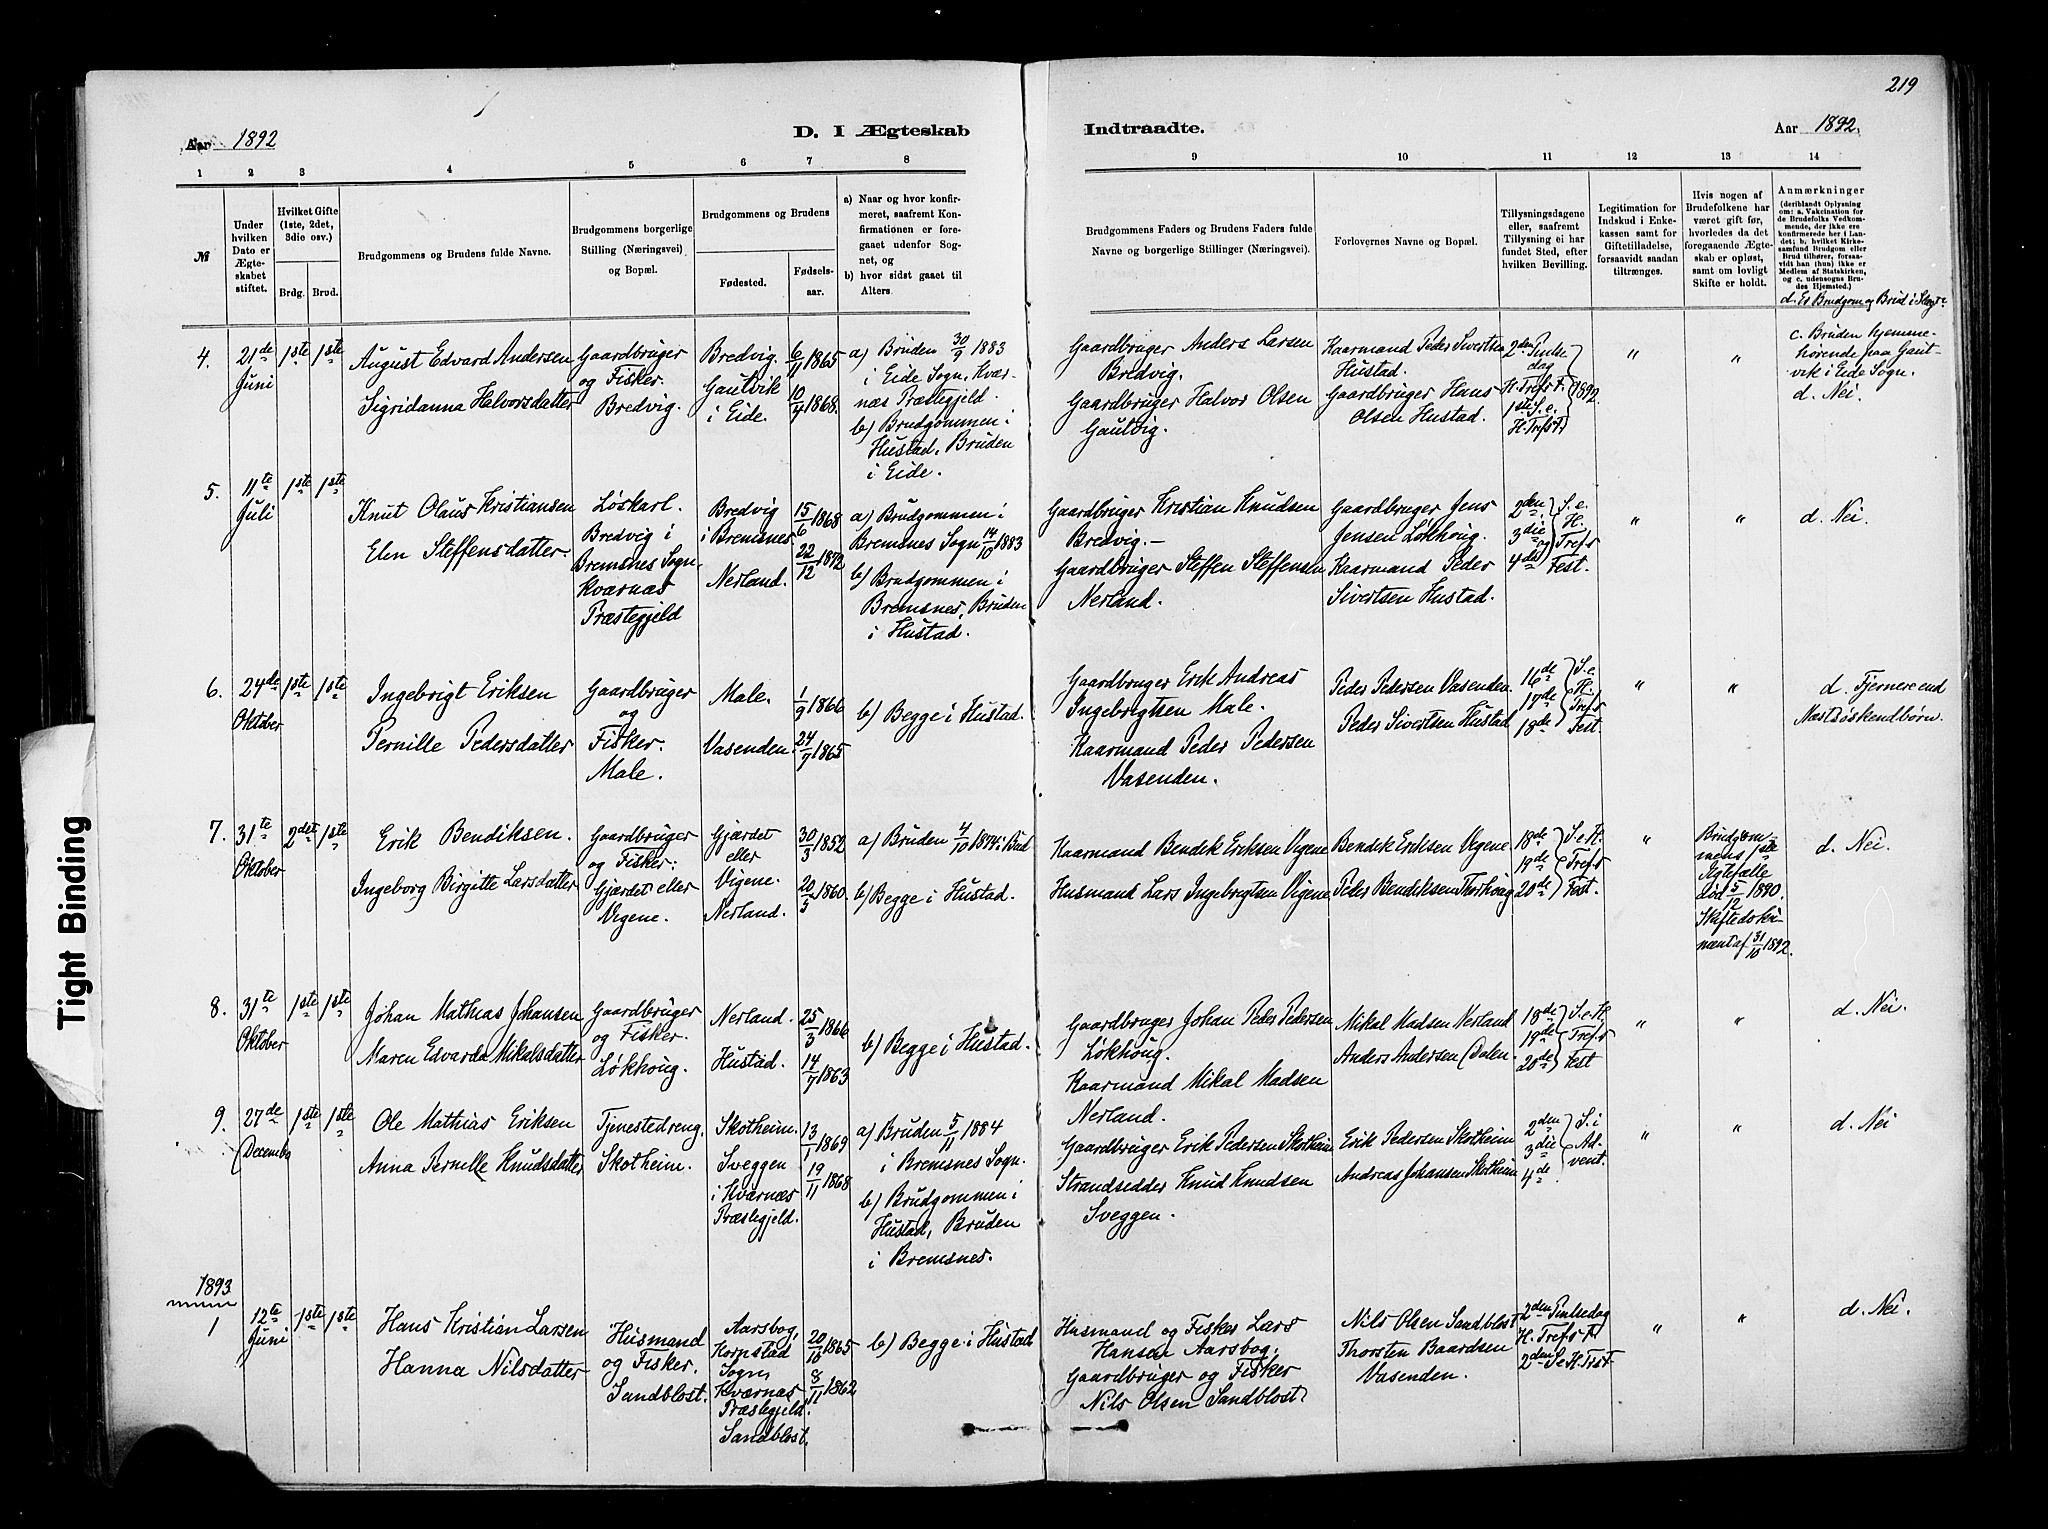 219
Aar 1892
D. I Ægteskab
Indtraadte.
Aar 1892.
1 2 3 4 5 6 7 8 9 10 11 12 13 14
№
Under hvilken Dato er Ægteskabet stiftet.
Hvilket Gifte (1ste, 2det, 3die osv.)
Brdg. Brud.
Brudgommens og Brudens fulde Navne.
Brudgommens borgerlige Stilling (Næringsvei) og Bopæl.
Brudgommens og Brudens
Fødested.
Fødselsaar.
a) Naar og hvor konfirmeret, saafremt Konfirmationen er foregaaet udenfor Sognet, og
b) hvor sidst gaaet til Alters.
Brudgommens Faders og Brudens Faders fulde Navne og borgerlige Stillinger (Næringsvei).
Forlovernes Navne og Bopæl.
Tillysningsdagene eller, saafremt Tillysning ei har fundet Sted, efter hvilken Bevilling.
Legitimation for Indskud i Enkekassen samt for Giftetilladelse, forsaavidt saadan tiltrænges.
Hvis nogen af Brudefolkene har været gift før, hvorledes da det foregaaende Ægteskab er opløst, samt om lovligt Skifte er holdt.
Anmærkninger
(deriblandt Oplysning om: a. Vakcination for de Brudefolks Vedkommende, der ikke ere konfirmerede her i Landet; b. hvilket Kirkesamfund Brudgom eller Brud tilhører, forsaavidt han (hun) ikke er Medlem af Statskirken, og c. udensogns Brudes Hjemsted.)
d. Er Brudgom og Brud i Slægt?
4.
21de
Juni
1ste 1ste
August Edvard Andersen
Sigridanna Halvorsdatter
Gaardbruger
og Fisker.
Bredvig.
Bredvig.
Gautvik
i Eide.
6/11 1865
10/4 1868.
a) Bruden 30/9 1883
i Eide Sogn, Kvær-
næs Præstegjeld.
b) Brudgommen i
Hustad, Bruden
i Eide.
Gaardbruger Anders Larsen
Bredvig.
Gaardbruger Halvor Olsen
Gautvig.
Kaarmand Peder Sivertsen
Hustad.
Gaardbruger Hans
Olsen Hustad.
2den Pintse
dag
H. Tref. s T.
1st S. e.
H. Tref s T.
1892.
"
"
c. Bruden hjemme-
hørende paa Gaut-
vik i Eide Sogn.
d. Nei.
5.
11te
Juli
1ste 1ste
Knut Olaus Kristiansen
Elen Steffensdatter.
Løskarl.
Bredvig i
Bremsnes Sogn,
Kværnæs
Præstegjeld
Bredvig
i Bremsnes
Nerland.
15/6 1868
22/12 1872
a) Brudgommen i
Bremsnes Sogn 14/10 1883
b) Brudgommen i
Bremsnes, Bruden
i Hustad.
Gaardbruger Kristian Knudsen
Bredvig.-
Gaardbruger Steffen Steffensen
Nerland.
Gaardbruger Jens
Jensen Løkhoug.
Kaarmand Peder
Sivertsen Hustad.
2den S. e.
3die H.
og Tref s
4de Fest.
"
"
d. Nei.
6.
24de
Oktober
1ste 1ste
Ingebrigt Eriksen
Pernille Pedersdatter
Gaardbruger
og
Fisker.
Male.
Male.
Vasenden.
1/9 1866
24/7 1865
b) Begge i Hustad.
Gaardbruger Erik Andreas
Ingebrigtsen Male.
Kaarmand Peder Pedersen
Vasenden.
Peder Pedersen Vasenden.
Peder Sivertsen Hustad
16de S. e.
17de H. Tref s
18de Fest.
"
"
d. Fjernere end
Næstsøskendbørn.
7.
31te
Oktober
2det 1ste
Erik Bendiksen.
Ingeborg Birgitte Larsdatter
Gaardbruger
og Fisker.
Gjærdet eller
Vigene.
Gjærdet
eller
Vigene.
Nerland.
30/3 1852
20/3 1860.
a) Bruden 4/10 1874 i Bud
b) Begge i Hustad.
Kaarmand Bendik Eriksen Vigene
Husmand Lars Ingebrigtsen Vigene
Bendik Eriksen Vigene
Peder Bendiksen Thorhoug
18de S. e. H.
19de Tref s
20de Fest.
"
Brudgom-
mens 1ste
Ægtefælle
død 5/12 1890.
Skiftedoku-
ment af 31/10 1892.
d. Nei.
8.
31te
Oktober
1ste 1ste
Johan Mathias Johansen
Maren Edvarda Mikalsdatter
Gaardbruger
og Fisker.
Løkhoug.
Nerland.
Hustad.
25/3 1866
14/7 1863
b) Begge i Hustad.
Gaardbruger Johan Peder Pedersen
Løkhoug.
Kaarmand Mikal Madsen
Nerland.
Mikal Madsen Nerland
Anders Andersen Dalen.
18de S. e. H.
19de Tref s
20de Fest
"
"
d. Nei.
9.
27de
Decembr
1ste 1ste
Ole Mathias Eriksen
Anna Pernille Knudsdatter
Tjenestedreng.
Skotheim.
Skotheim.
Sveggen
i Kværnæs
Præstegjeld.
13/1 1869
19/11 1868
a) Bruden 5/11 1884
i Bremsnes Sogn.
b) Brudgommen i
Hustad, Bruden
i Bremsnes.
Gaardbruger Erik Pedersen Skotheim
Strandsidder Knud Knudsen
Sveggen.
Erik Pedersen Skotheim
Andreas Johansen Skotheim
2den S. i
3die Ad-
4de vent.
"
"
d. Nei
1893
1
12te
Juni
1ste 1ste
Hans Kristian Larsen
Hanna Nilsdatter
Husmand
og Fisker.
Sandblost.
Aarsbog,
Kornstad
Sogn,
Kværnæs
Præstegjeld.
Sandblost.
20/10 1865
8/11 1862
b) Begge i Hustad
Husmand og Fisker Lars
Hansen Aarsbog.
Gaardbruger og Fisker
Nils Olsen Sandblost.
Nils Olsen Sandblost
Thorsten Baardsen
Vasenden.
2den Pintsedag
H. Tref s T.
2den S. e. H. Tr s T.
"
"
d. Nei.
Tight Binding